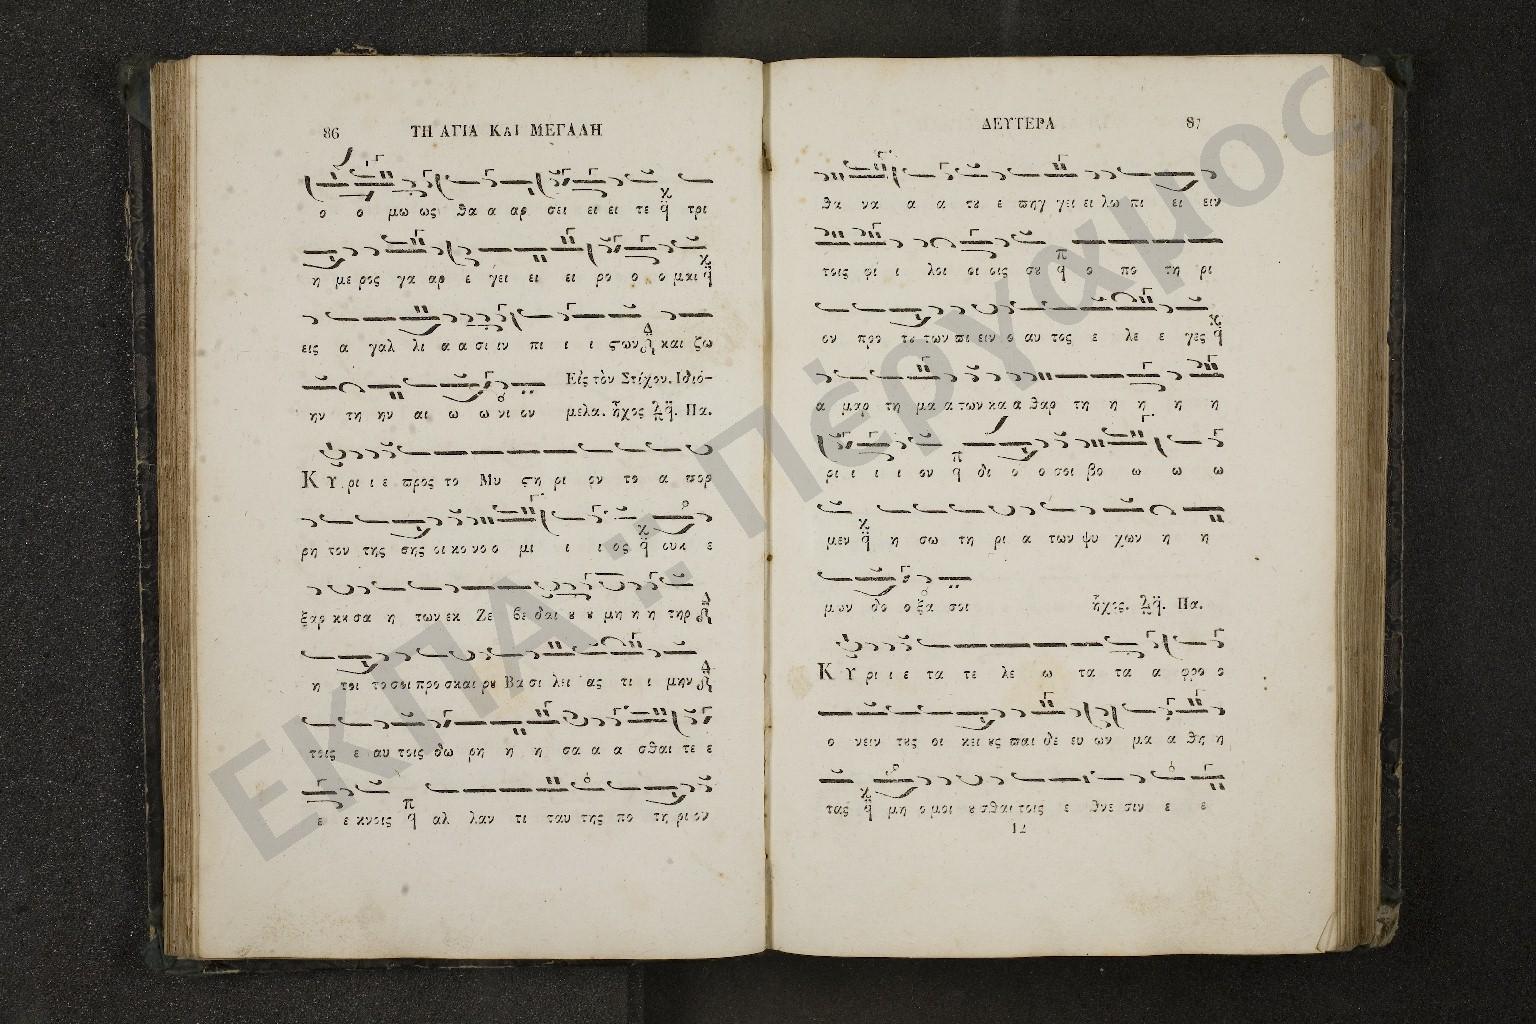 86 ΤΗ ΑΓΙΑ ΚΑΙ ΜΕΓΑΛΗ
ο ο μω ως θα α αρ σει ει ει τε τρι
η με ρος γα αρ ε γει ει ει ρο ο ο μαι
εις α γαλ λι α α σι ιν πι ι ι ςων και ζω
Εἰς τὸν Στίχον. Ιδιό-
ην τη ην αι ω ω νι ον μελα. ἦχος Πα.
Κ Υ ρι ι ε προς το Μυ ςη ρι ον το α πορ
ρη τον της σης οι κο νο ο μι ι ι ος ουκ ε
ξαρ κκσα η των εκ Ζε βε δαι ου ου μη η η τηρ
η τοι το σοι προσκαι ρου Βα σι λει ας τι ι μην
τοις ε αυ τοις δω ρη η η σα α α σθαι τε ε
ε ε κνοις αλ λαν τι ταυ της πο τη ρι ον
ΔΕΥΤΕΡΑ 87
θα να α α του ε πηγ γει ει λω πι ει ειν
τοις φι ι λοι οι οις σου ο πο τη ρι
ον προ του των πι ειν ο αυ τος ε λε ε γες
α μαρ τη μα α των κα α θαρ τη η η η η
ρι ι ι ι ον δι ο ο σοι βο ω ω ω
μεν η σω τη ρι α των ψυ χων η η
μων δο ο ξα σοι ἦχος. Πα.
Κ Υ ρι ι ε τα τε λε ω τα τα α φρο ο
ο νειν τους οι κει ους παι δε ευ ων μα α θη η
τας μη ο μοι ουσθαι τοις ε θνε σιν ε ε
12
ΕΚΠΑ :: Πέργαμος